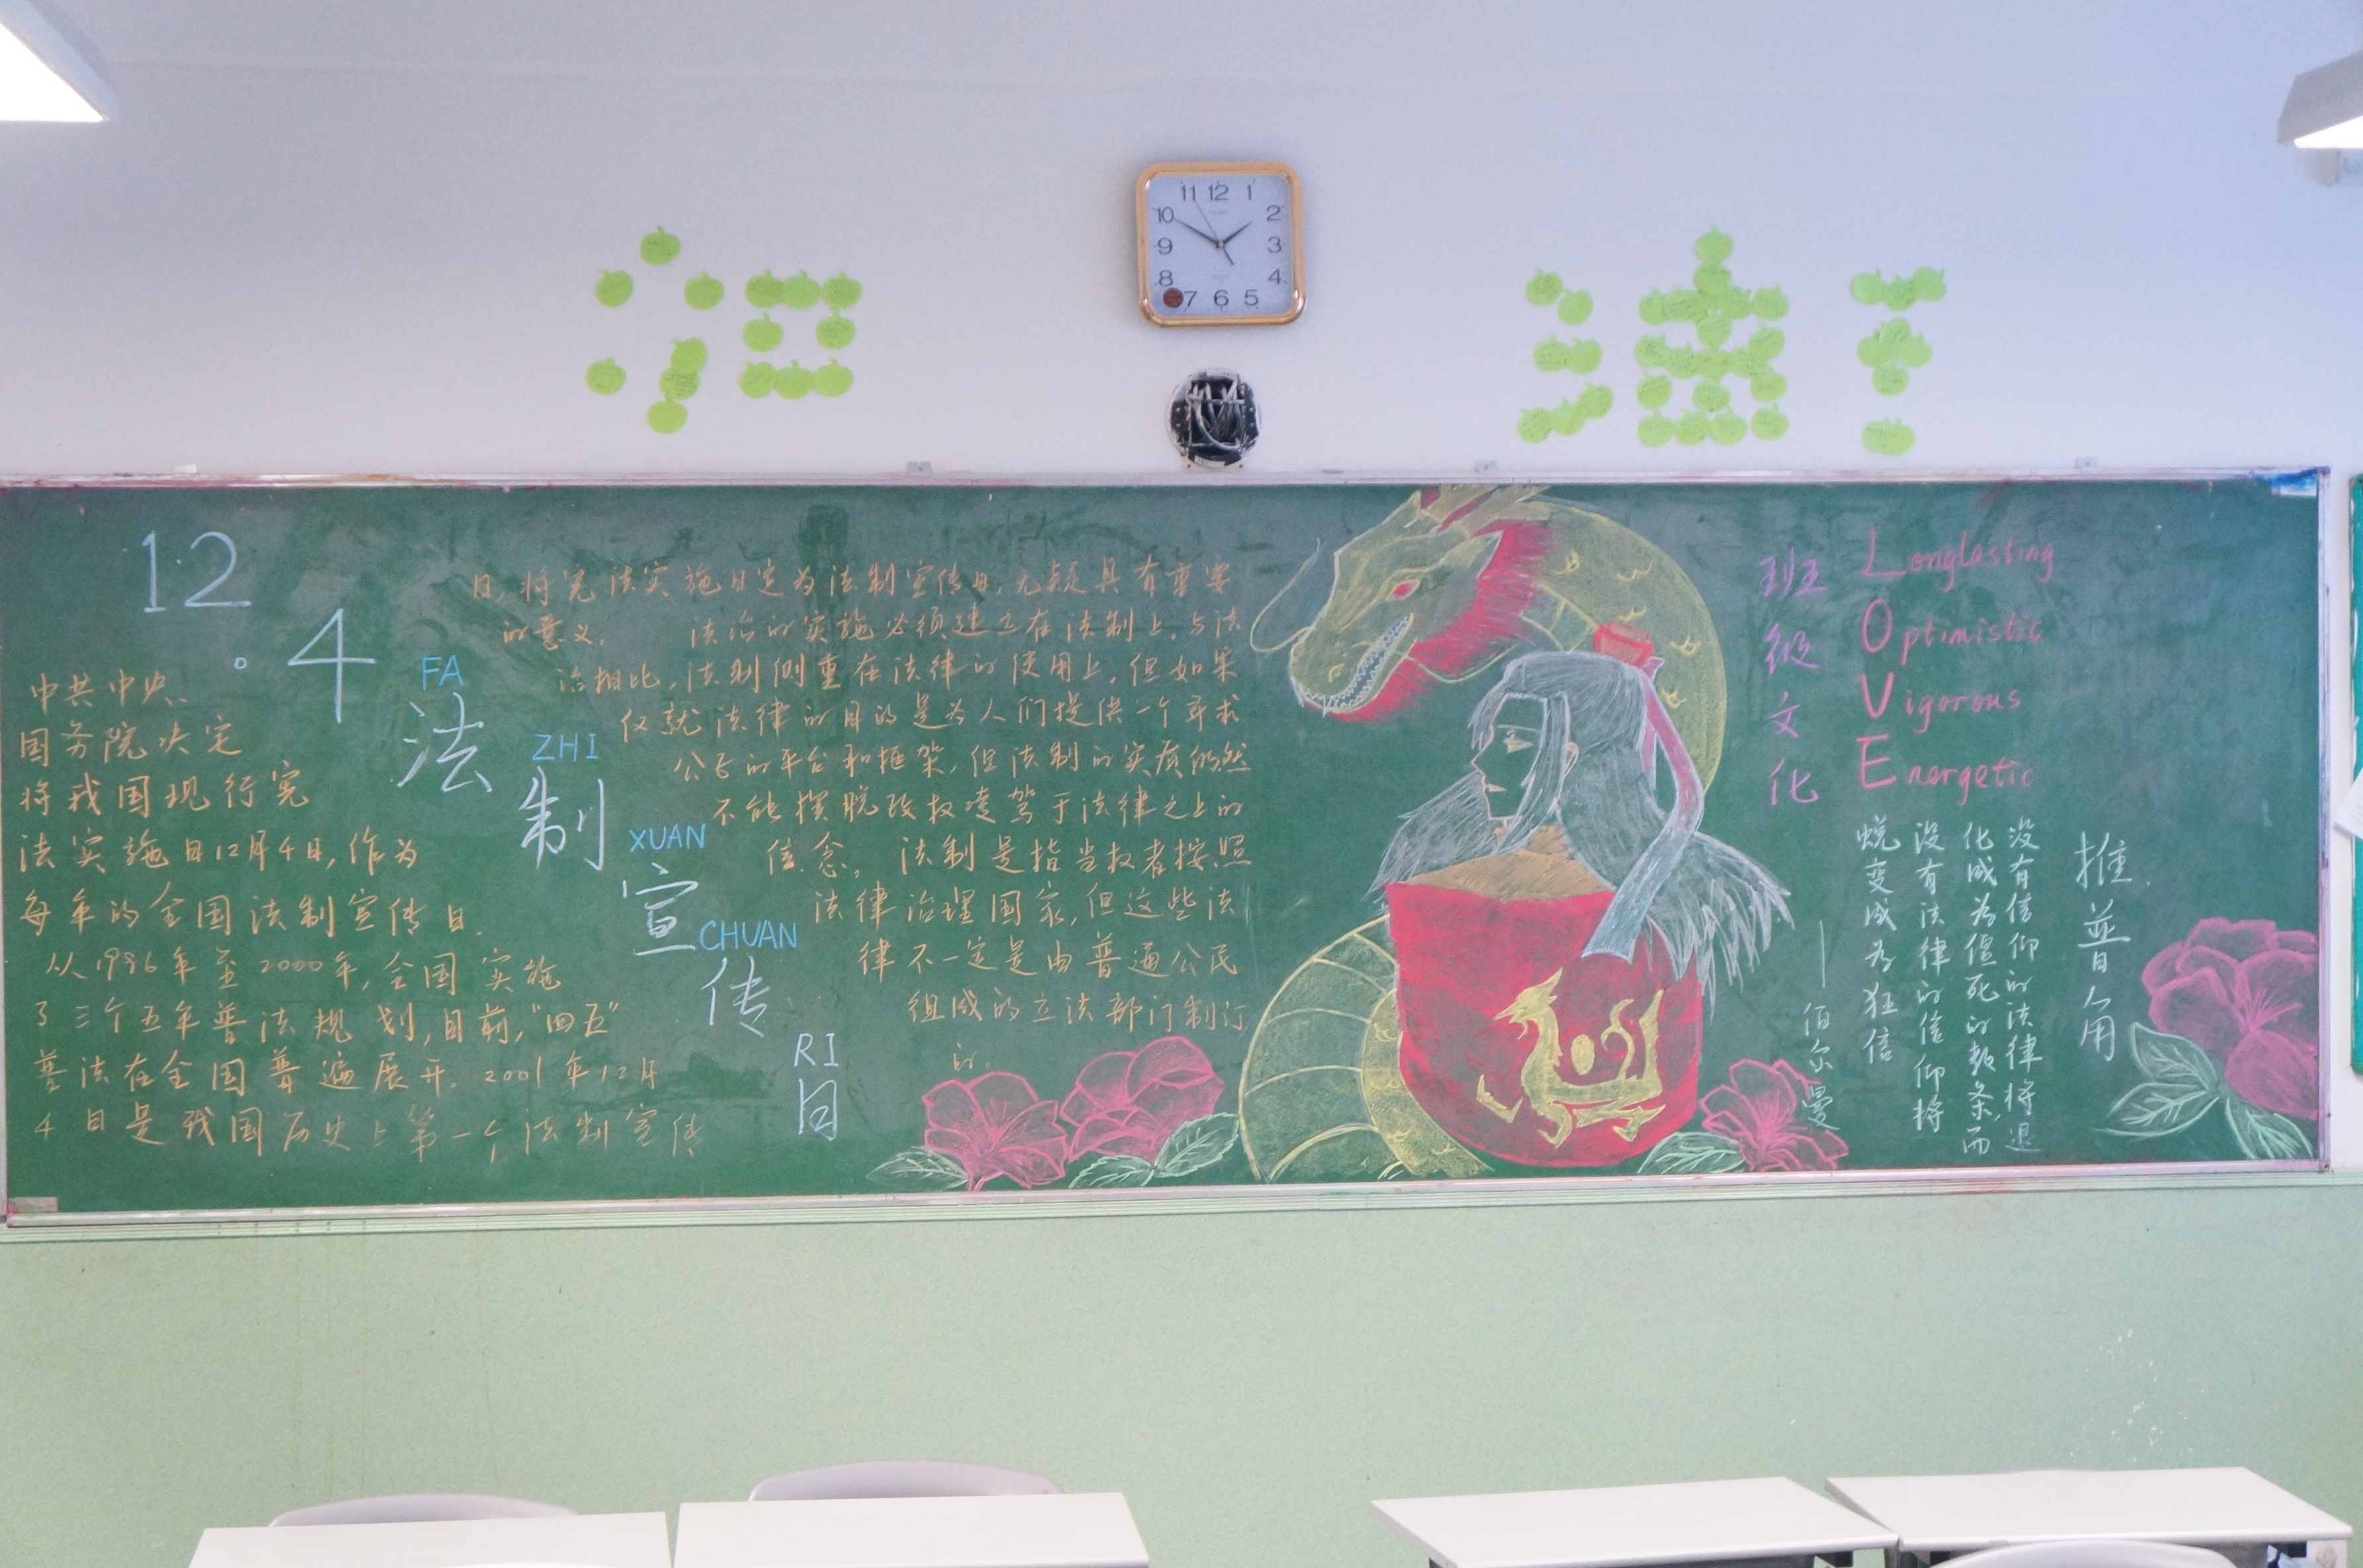 11 12 1
10 2
9 3
8 4
7 6 5
加油!
12.4
FA
法
ZHI
制
XUAN
宣
CHUAN
传
RI
日
中共中央、
国务院决定
将我国现行宪
法实施日12月4日,作为
每年的全国法制宣传日.
从1986年至2000年,全国实施
了三个五年普法规划,目前,“四五”
普法在全国普遍展开.2001年12月
4日是我国历史上第一个法制宣传
日,将宪法实施日定为法制宣传日,无疑具有重要
的意义。 法治的实施必须建立在法制上。与法
治相比,法制侧重在法律的使用上,但如果
仅就法律的目的是为人们提供一个寻求
公正的平台和框架,但法制的实质仍然
不能摆脱政权凌驾于法律之上的
信念。 法制是指当权者按照
法律治理国家,但这些法
律不一定是由普通公民
组成的立法部门制订
的。
班级文化
Longlasting
Optimistic
Vigorous
Energetic
推普角
没有信仰的法律将退
化成为僵死的教条,而
没有法律的信仰将
蜕变成为狂信
——伯尔曼